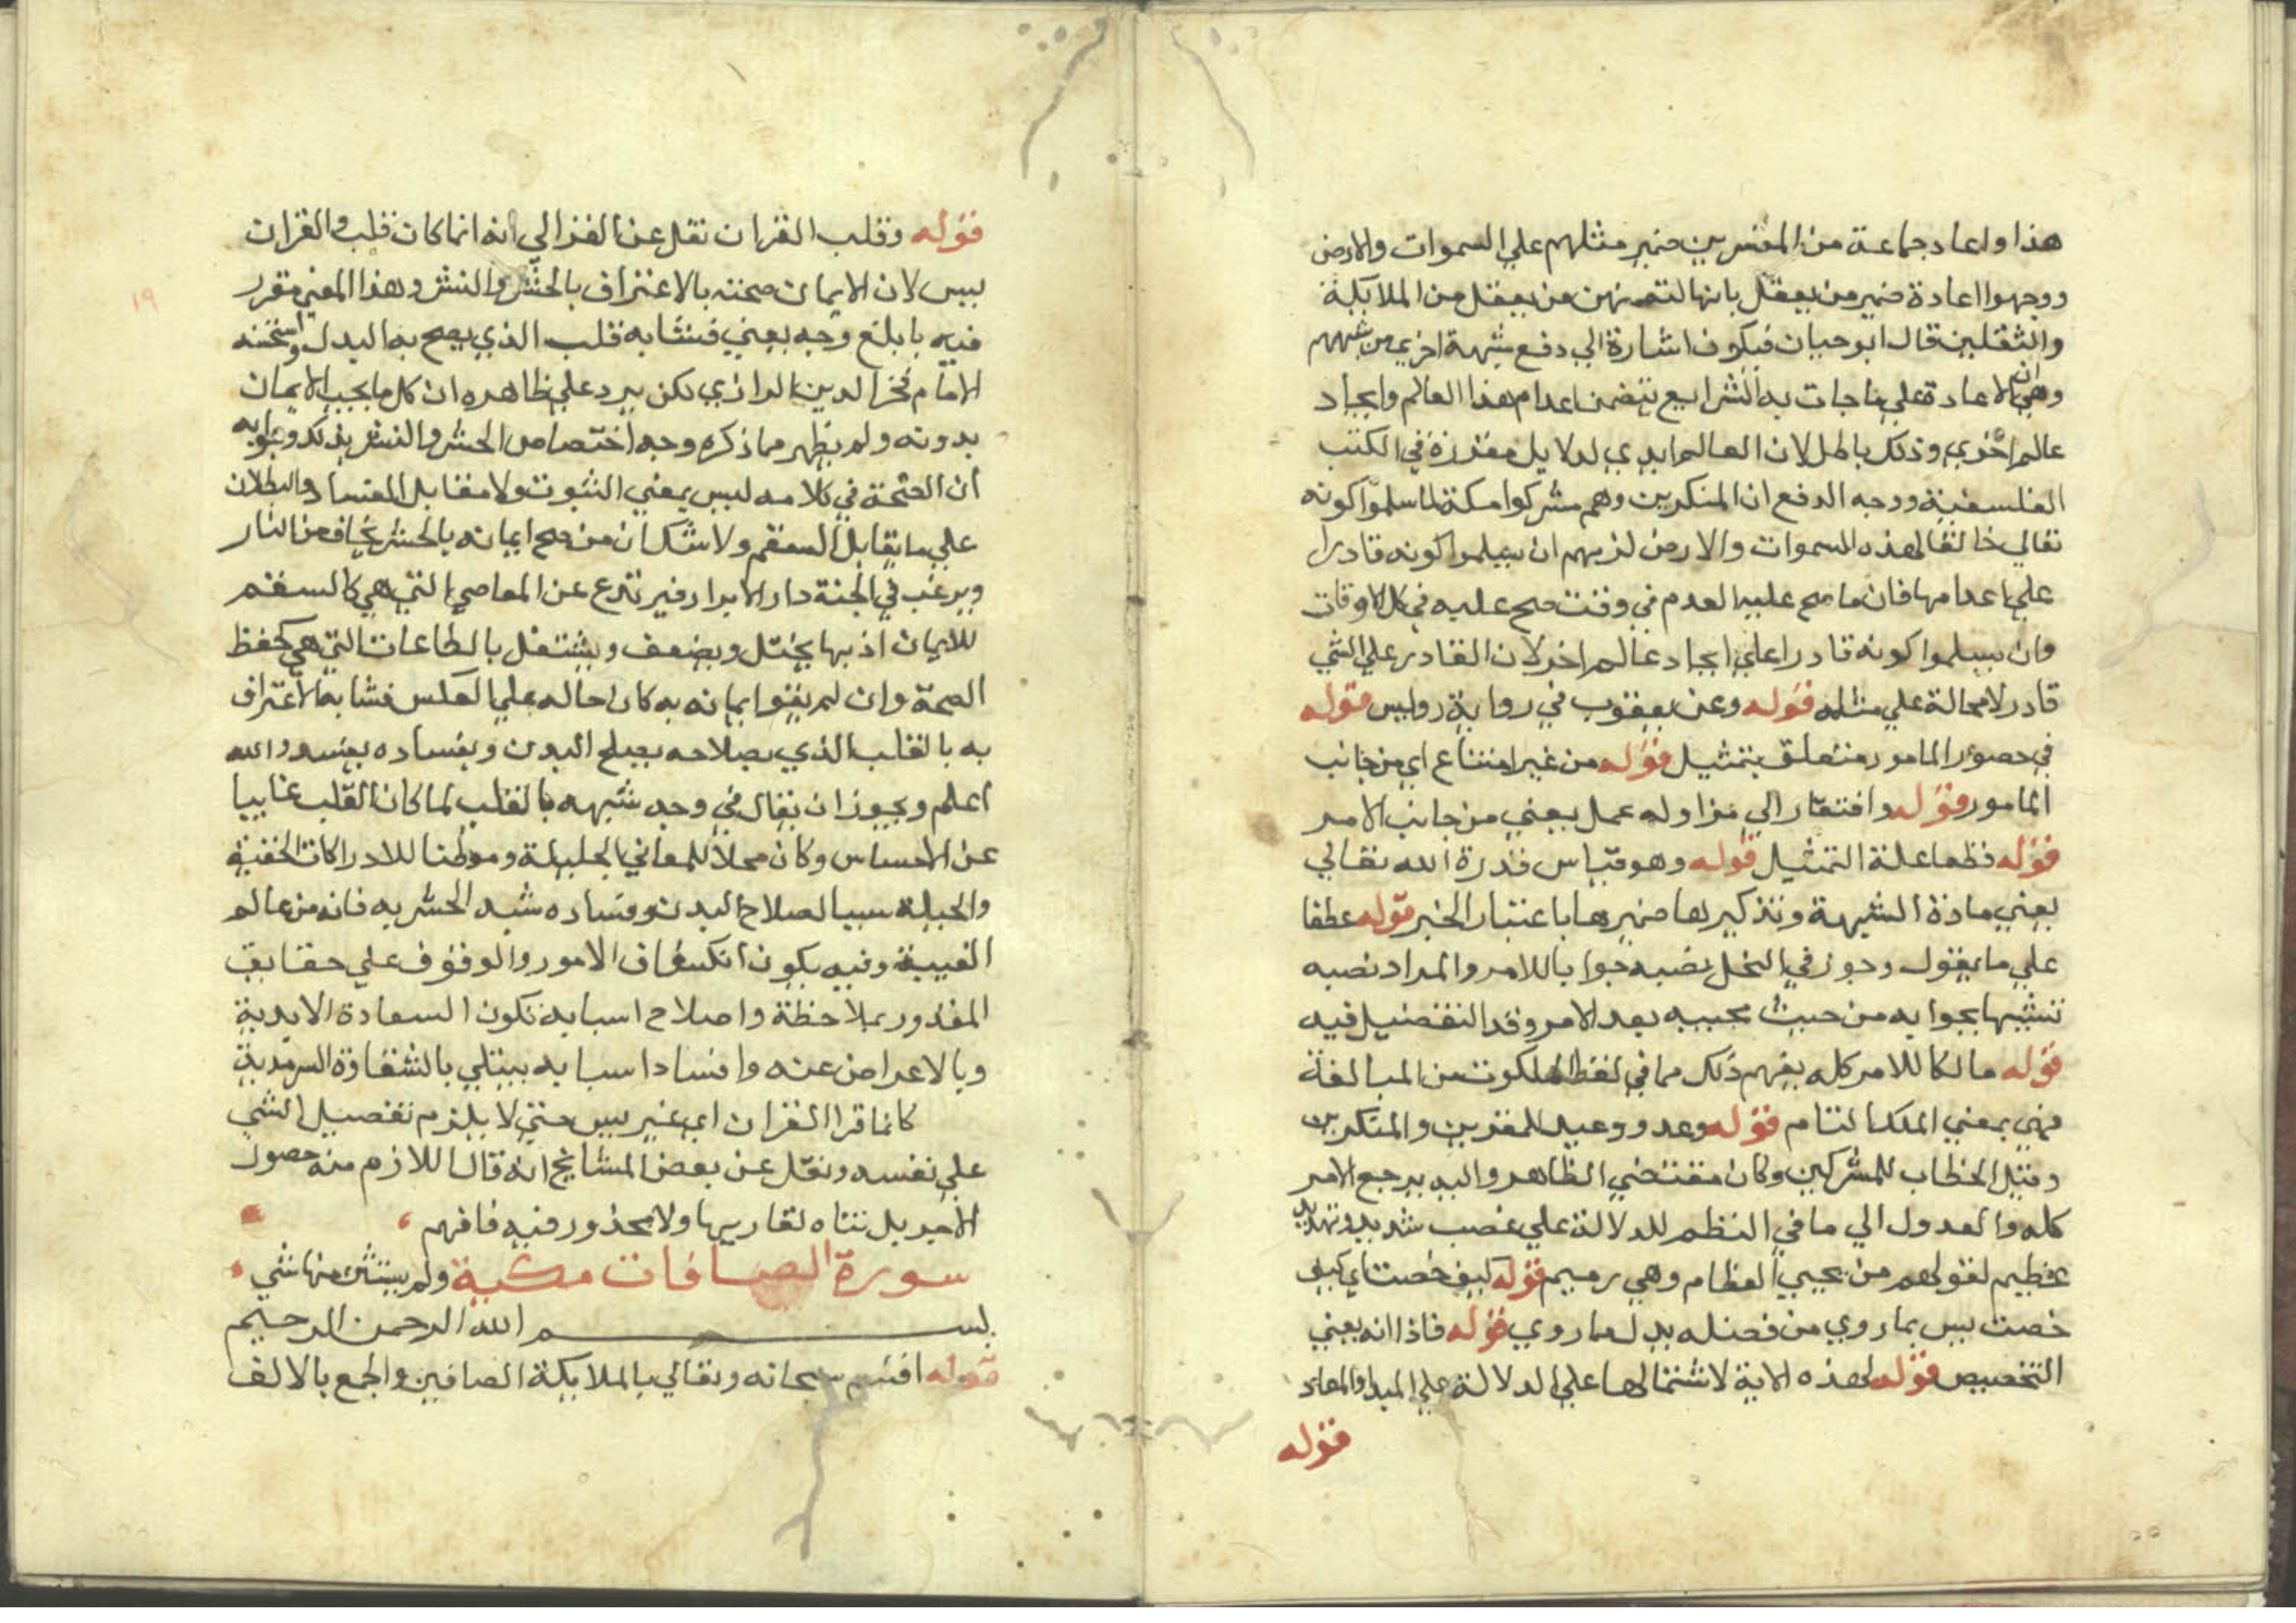 هذا واعاد جماعة من المفسرين ضمير مثلهم علي السموات والارض
ووجهوا اعادة ضمير من يعقل بانها لتضمنهن من يعقل من الملايكة
والثقلين قال ابو حيان فيكون اشارة الي دفع شبهة اخري من شبههم
وهي ان الاعادة علي ما جات به الشرايع تتضمن اعدام هذا العالم وايجاد
عالم اخري وذلك باطل لان العالم ابدي لدلايل مقررة في الكتب
الفلسفية ووجه الدفع ان المنكرين وهم مشركوا مكة لما سلموا كونه
تعالي خالقا لهذه السموات والارض لزمهم ان يسلموا كونه قادرا
علي اعدامها فان ما صح عليه العدم في وقت صح عليه في كل الاوقات
وان يسلموا كونه قادرا علي ايجاد عالم اخر لان القادر علي الشي
قادر لا محالة علي مثله قوله وعن يعقوب في رواية رويس قوله
في حصول المامور متعلق بتمثيل قوله من غير امتناع اي من جانب
المامور قوله وافتقار الي مزاوله عمل يعني من جانب الامر
قوله قطعا علة التمثيل قوله وهو قياس قدرة الله تعالي
يعني مادة الشبهة وتذكيرها ضميرها باعتبار الخبر قوله عطفا
علي ما يقول وجوز في النحل نصبه جوابا للامر والمراد نصبه
تشبيها بجوابه من حيث مجييه بعد الامر وقد التفضيل فيه
قوله مالكا للامر كله يفهم ذلك مما في لفظ الملكوت من المبالغة
فهي بمعني الملك التام قوله وعد ووعيد للمقرين والمنكرين
وقيل الخطاب للمشركين وكان مقتضي الظاهر واليه يرجع الامر
كله والعدول الي ما في النظم للدلالة علي غضب شديد وتهديد
عظيم لقولهم من يحيي العظام وهي رميم قوله كيف خصت اي كيف
خصت يس بما روي من فضله بدل مما روي قوله فاذا انه يعني
التخصيص قوله لهذه الاية لاشتمالها علي الدلالة علي المبدا والمعاد
قوله
قوله وقلب القران نقل عن الغزالي انه انما كان قلب والقران
١٩
يس لان الايمان صحته بالاعتراف بالحشر والنشر وهذا المعني مقرر
فيه بابلغ وجه يعني فشابه قلب الذي يصح به البدل واستحسنه
الامام فخر الدين الرازي لكن يرد علي ظاهره ان كل ما يجب الايمان
بدونه ولم يظهر مما ذكره وجه اختصاص الحشر والنشر بذلك وجوابه
ان الصحة في كلامه ليس بمعني الثبوت ولا مقابل الفساد والبطلان
علي ما يقابل السقم ولا شك ان من صح ايمانه بالحشر يخاف من النار
ويرغب في الجنة دار الابرار فيرتدع عن المعاصي التي هي كالسقم
للايمان اذ بها يختل ويضعف ويشتغل بالطاعات التي هي كحفظ
الصحة وان لم يقوا يمانه به كان حاله علي العكس فشابه الاعتراف
به بالقلب الذي بصلاحه يصلح البدن وبفساده يفسد والله
اعلم ويجوز ان يقال في وجه شبهه بالقلب لما كان القلب غايبا
عن الاحساس وكان محلا للمعاني الجليلة وموطنا للادراكات الخفية
والجيلة سببا لصلاح البدن وفساده شبه الحشر به فانه من عالم
الغيبة وفيه يكون انكشاف الامور والوقوف علي حقايق
المقدور بملاحظة واصلاح اسبابه تكون السعادة الابدية
وبالاعراض عنه وافساد اسبابه يبتلي بالشقاوة السرمدية
كانما قرا القران اي غير يس حتي لا يلزم تفضيل الشي
علي نفسه ونقل عن بعض المشايخ انه قال اللازم منه حصول
الاجر بل تناه لقاريها ولا محذور فيه فافهم
سورة الصافات مكية ولم يستثن منها شي
بسم الله الرحمن الرحيم
قوله اقسم سبحانه وتعالي بالملايكة الصافين والجمع بالالف